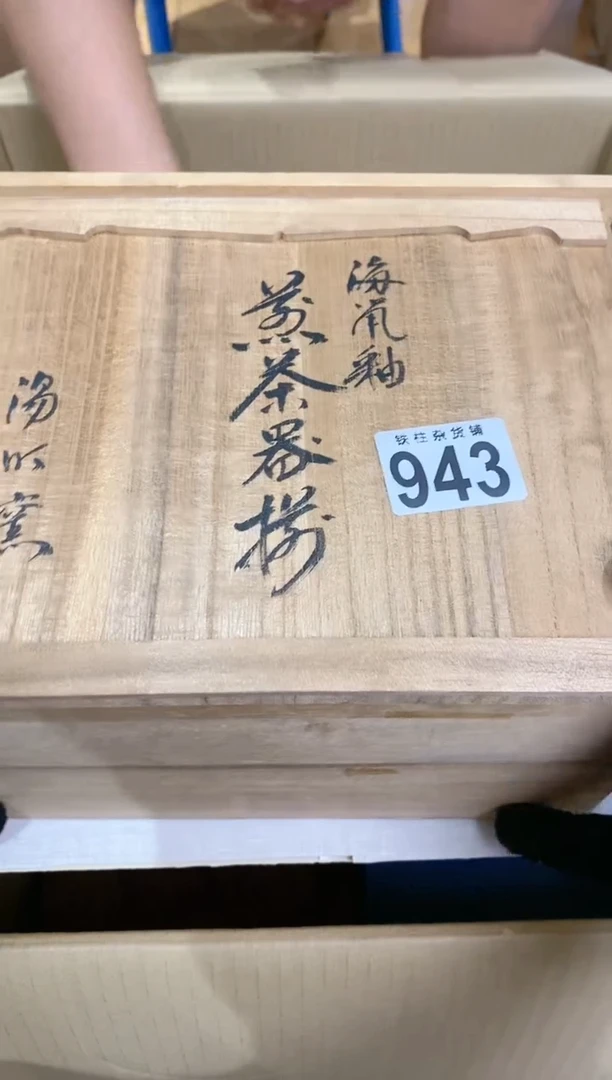 海鼠釉
煎茶器揃
湯町窯
铁柱杂货铺
943